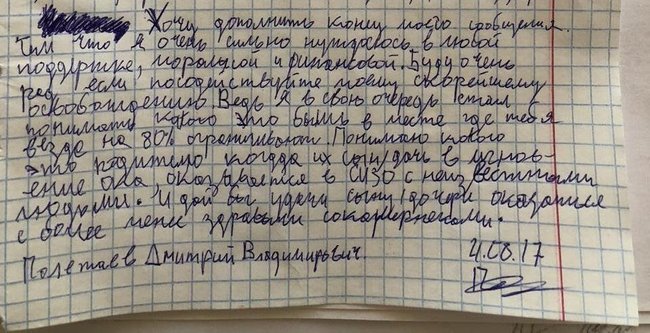 Хочу дополнить конец моего сообщения.
Тем что я очень сильно нуждаюсь в любой
поддержке, моральной и финансовой. Буду очень
рад если посодействуйте моему скорейшему
освобождению. Ведь я в свою очередь стал
понимать какого это быть в месте где тебя
везде на 80% ограничивают. Понимаю какого
это родителю когда их сын/дочь в мгнов-
ение ока оказывается в СИЗО с неизвестными
людьми. И дай бы удачи сыну/дочери оказаться
с более менее здравыми сокамерниками.
Полетаев Дмитрий Владимирович.
4.08.17